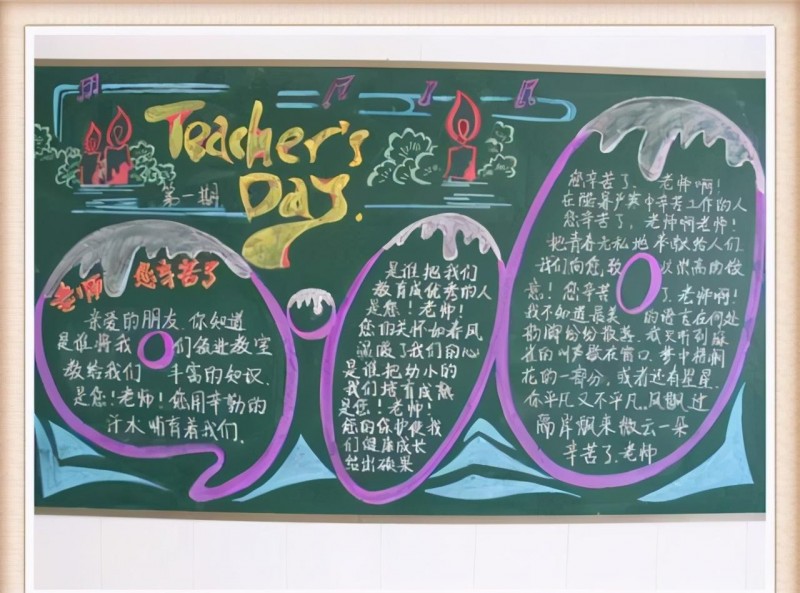 Teacher's
Day.
第一期
老师 您辛苦了
亲爱的朋友.你知道
是谁.将我们领进教室
教给我们 丰富的知识.
是您!老师!您用辛勤的
汗水哺育着我们.
是谁把我们
教育成优秀的人
是您!老师!
您的关怀如春风
温暖了我们的心
是谁把幼小的
我们培育成熟
是您!老师!
您的保护使我
们健康成长
结出硕果
您辛苦了. 老师啊!
在酷暑严寒中辛苦工作的人
您辛苦了,老师啊老师!
把青春无私地奉献给人们.
我们向您致 以崇高的敬
意!您辛苦 了.老师啊!
我不知道最美 的语言在何处
纷纷散落.我只听到麻
雀的叫声散在窗口.梦中将渊
花的一部分,或者还有星星.
你平凡又不平凡.风飘过
隔岸飘来微云一朵
辛苦了.老师